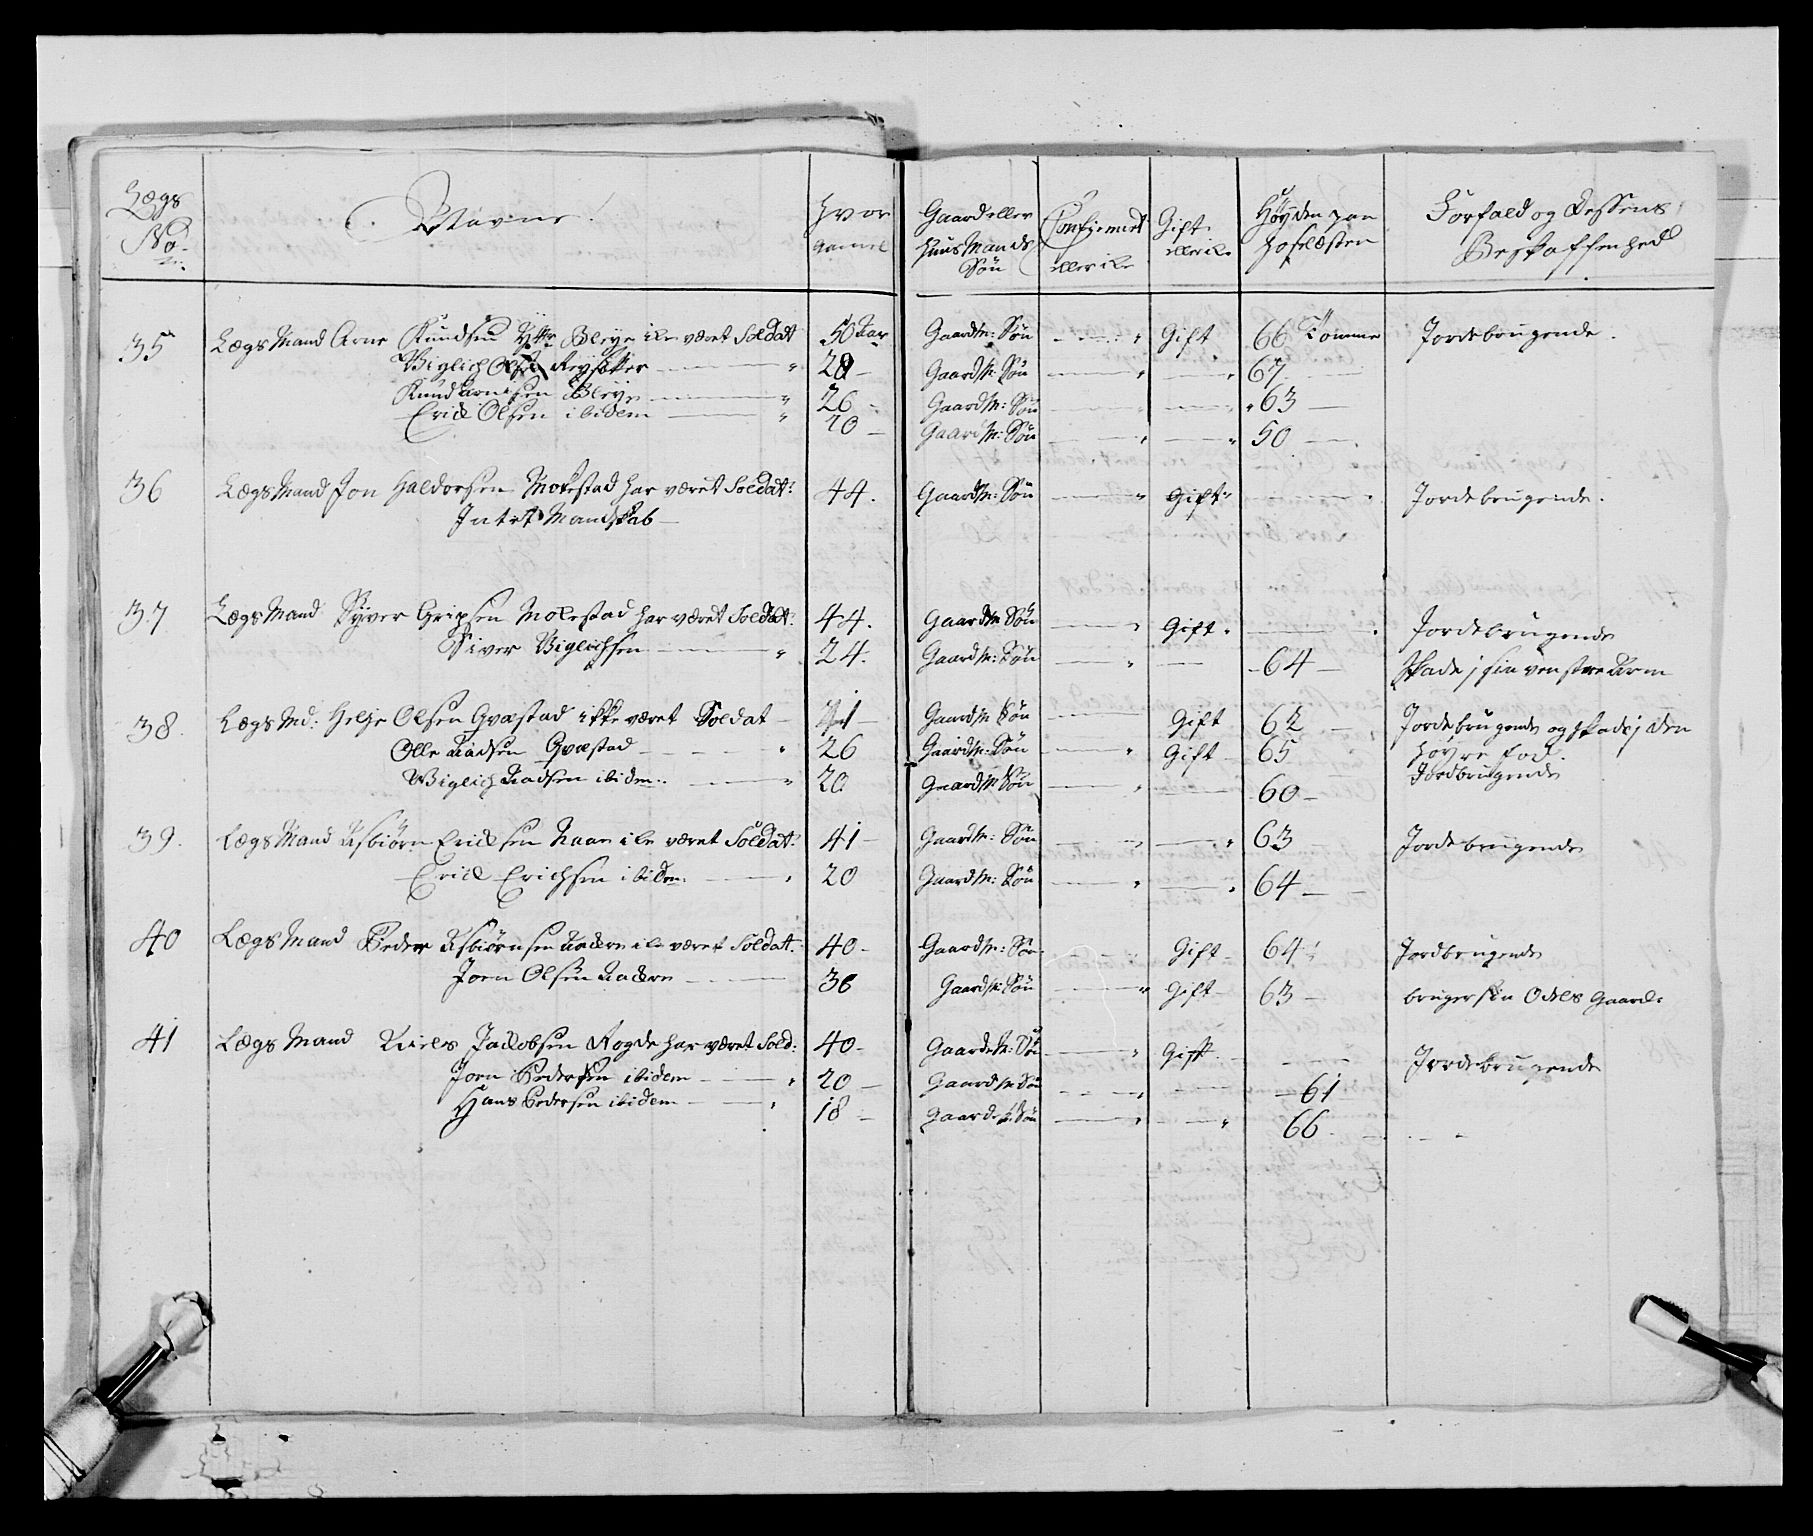 Lægs No: | Navne | Hvor gamel | Gaard eller Huus Mands Søn | Confirmert eller ike | Gift eller ike | Høyden paa Hofolæsten | Forfald og Dessens Beskaffenhed
35 Lægs Mand Arne Knudsen Yttr Bleye ike været Soldat 50 Aar Gaardm: Søn " Gift 66 Tomme Jordebrugende.
Viglich Olsen Reysæter " 28 Gaardm: Søn " " 67
Knud Arnesen Bleye " 26 Gaardm: Søn " " 63
Erick Olsen ibidem " 20 Gaardm: Søn " " 50
36 Lægs Mand Jon Haldorsen Molestad har været Soldat: 44. Gaardm: Søn " Gift " Jordebrugende.
Intet Mandskab
37 Lægs Mand Syver Gripsen Molestad har været Soldat: 44. Gaardm Søn " Gift. Jordebrugende
Siver Viglichsen " 24. Gaardm: Søn " 64 Skade i sin venstre Arm
38. Lægs Md: Helje Olsen Qvæstad ikke været Soldat 41 Gaardm Søn Gift 62 Jordebrugende og skade i den
Høyre fod.
Olle Aadsen Qvæstad " 26 Gaardm: Søn " Gift 65 Jordbrugende
Wiglich Aadsen ibidem. " 20 Gaardm Søn " 60
39. Lægs Mand Asbiørn Ericksen Naae ike været Soldat: 41 Gaardm: Søn " " 63 Jordebrugende
Erick Erichsen ibidem. " 20 Gaardm: Søn " " 64
40 Lægs Mand Peder Asbiørnsen ike været Soldat: 40 Gaardm: Søn Gift 64 Jordbrugende
Joen Olsen 36 Gaardm: Søn " Gift 63 bruger sin Odels Gaard:
41 Lægs Mand Niels Jacobsen Rogde har været Sold: 40 Gaardem: Søn " Gift. Jordebrugende
Joen Pedersen ibidem " 20 Gaardm Søn " 61
Hans Pedersen ibidem " 18 Gaardem: Søn " " 66